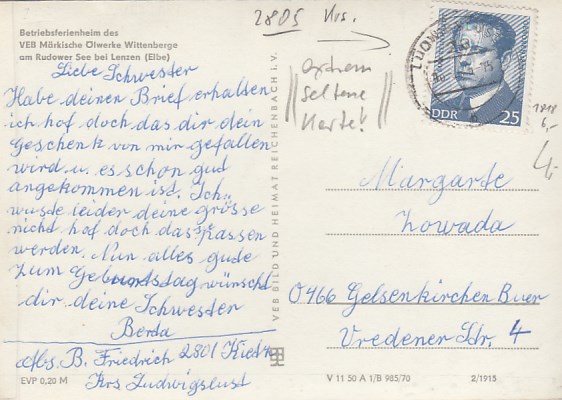 Betriebsferienheim des
VEB Märkische Ölwerke Wittenberge
am Rudower See bei Lenzen (Elbe)
Liebe Schwester
Habe deiner Brief erhalten
ich hof doch das dir dein
Geschenk von mir gefallen
wird u. es schon gud
angekommen isd. Ich
wuste leider deine grösse
nicht hof doch das es Passen
werden. Nun alles gude
zum Geburtstag wünscht
dir deine Schwester
Berta
Abs. B. Friedrich 2801
Krs Ludwigslust
EVP 0,20 M
VEB BILD UND HEIMAT REICHENBACH I. V.
2805 Krs.
seltene
Karte!
DDR 25
1818
6,-
4,-
Margarte
Zowada
0466 Gelsenkirchen Buer
Vredener Str. 4
V 11 50 A 1/B 985/70
2/1915